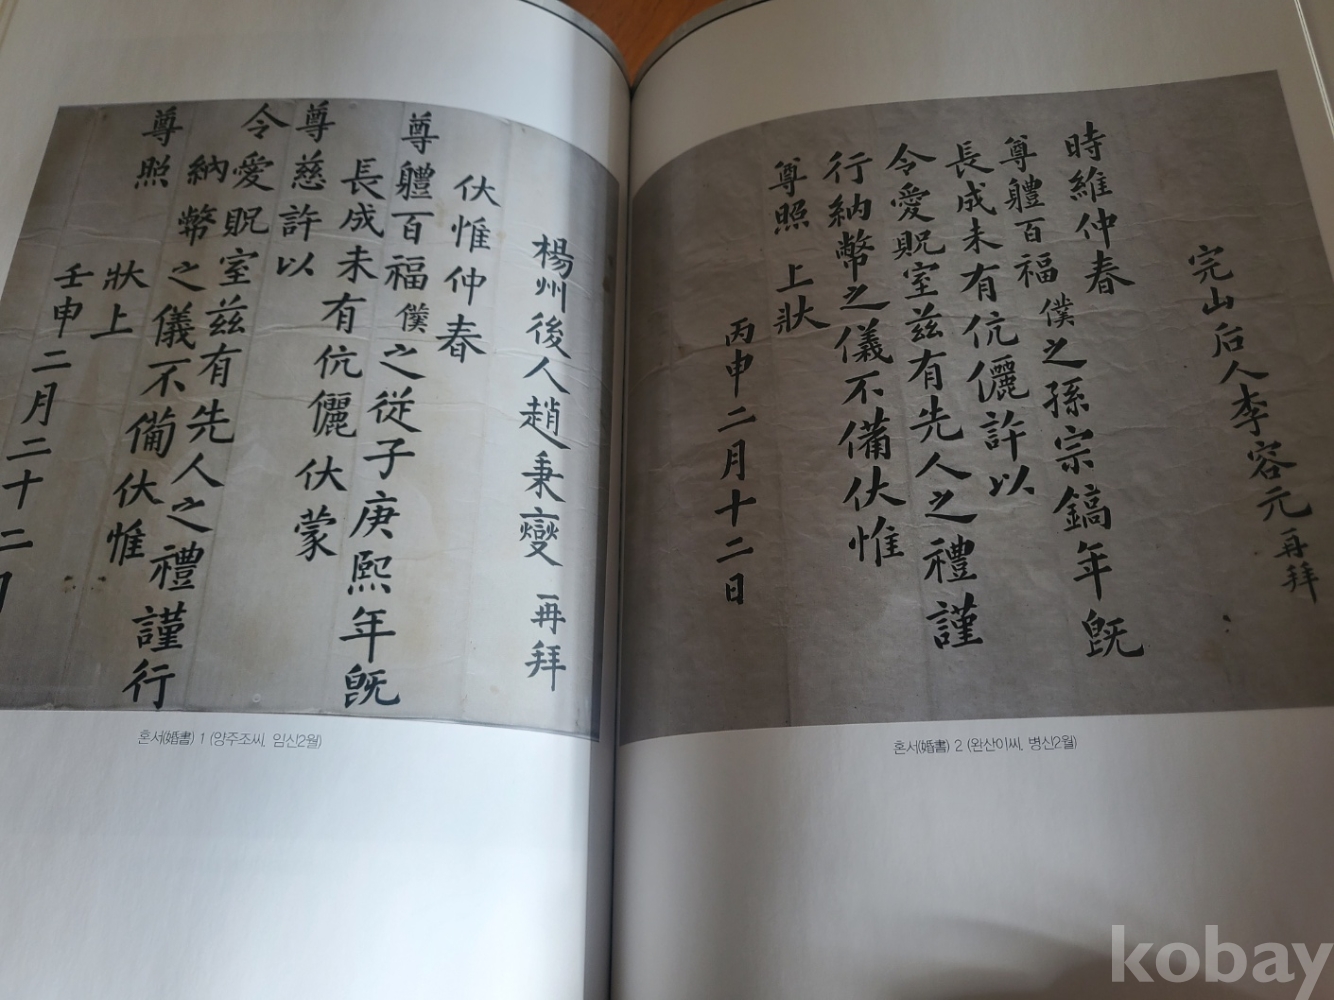 楊州後人趙秉夑 再拜
伏惟仲春
尊軆百福僕之從子庚熙年旣
長成未有伉儷伏蒙
尊慈許以
令愛貺室兹有先人之禮謹行
納幣之儀不備伏惟
尊照
狀上
壬申二月二十二日
혼서(婚書) 1 (양주조씨, 임신2월)
完山后人李容元 再拜
時維仲春
尊軆百福僕之孫宗鎬年旣
長成未有伉儷許以
令愛貺室兹有先人之禮謹
行納幣之儀不備伏惟
尊照 上狀
丙申二月十二日
혼서(婚書) 2 (완산이씨, 병신2월)
kobay